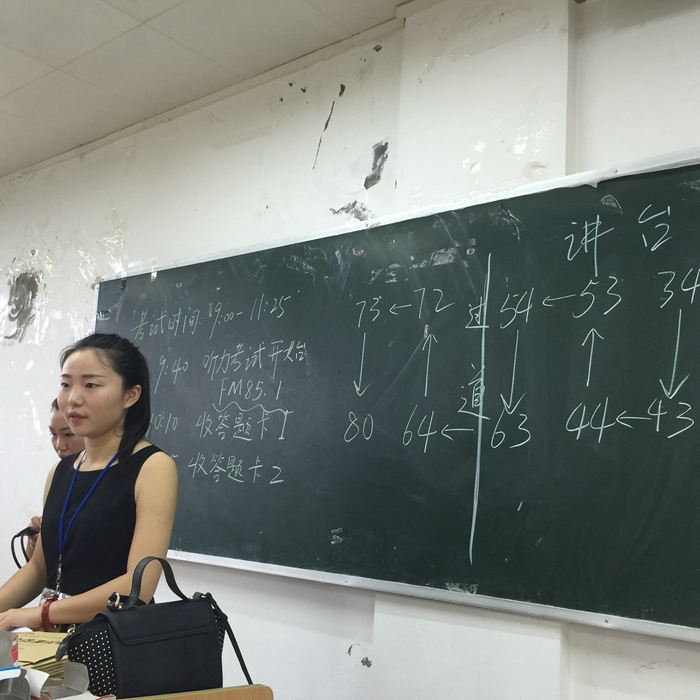 讲台
考试时间 9:00-11:25
9:40 听力考试开始
FM85.1
10:10 收答题卡1
收答题卡2
过道
73←72 54←53 34
80 64←63 44←43